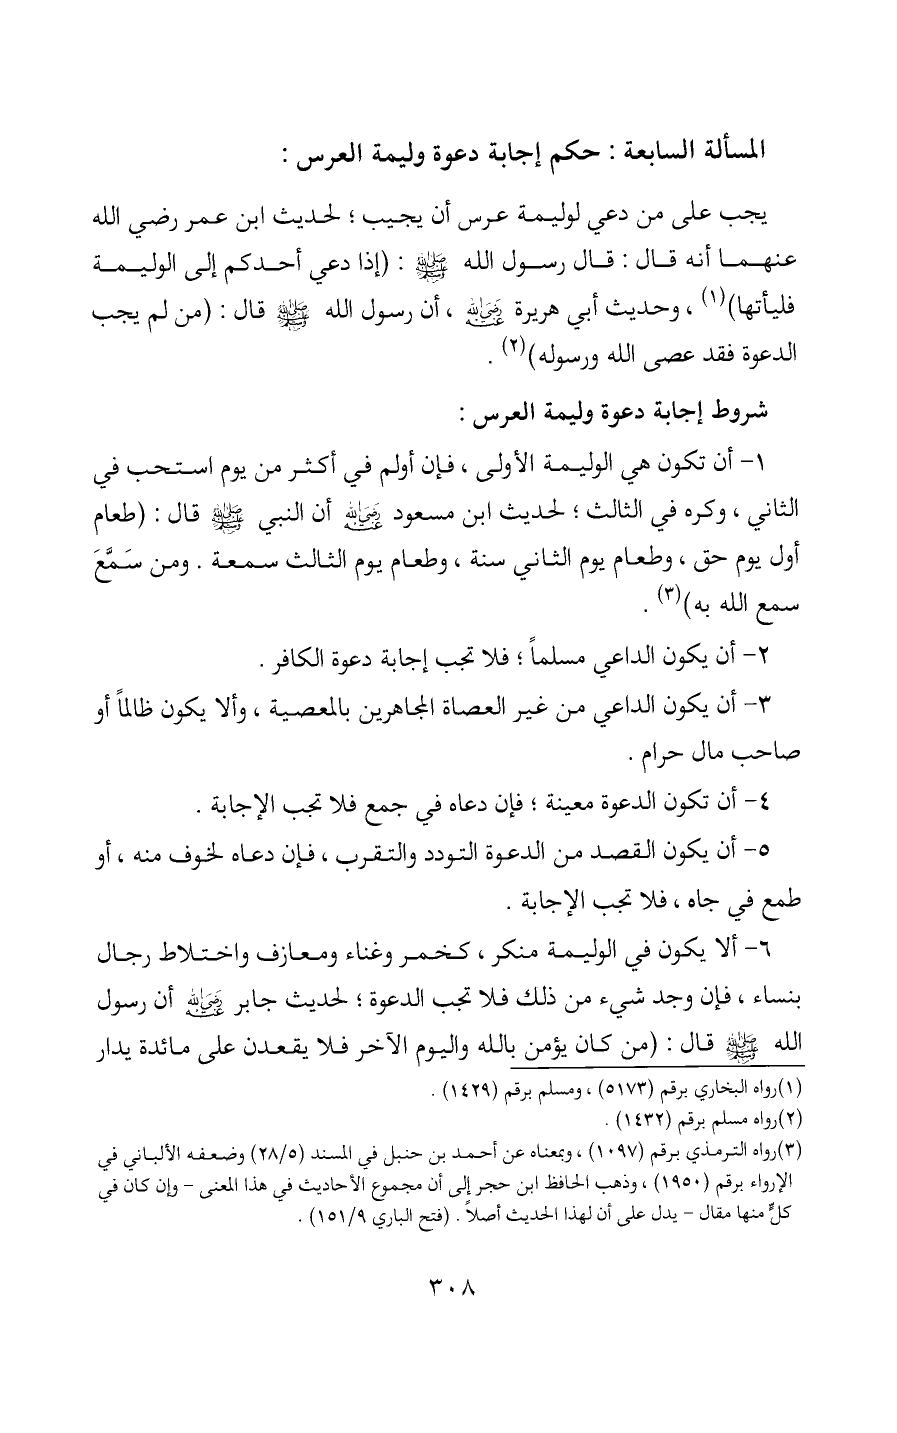 المسألة السابعة : حكم إجابة دعوة وليمة العرس :
يجب على من دعي لوليمة عرس أن يجيب ؛ لحديث ابن عمر رضي الله
عنهما أنه قال : قال رسول الله ﷺ : (إذا دعي أحدكم إلى الوليمة
فليأتها)(١) ، وحديث أبي هريرة رضي الله عنه ، أن رسول الله ﷺ قال : (من لم يجب
الدعوة فقد عصى الله ورسوله)(٢) .
شروط إجابة دعوة وليمة العرس :
١- أن تكون هي الوليمة الأولى ، فإن أولم في أكثر من يوم استحب في
الثاني ، وكره في الثالث ؛ لحديث ابن مسعود رضي الله عنه أن النبي ﷺ قال : (طعام
أول يوم حق ، وطعام يوم الثاني سنة ، وطعام يوم الثالث سمعة . ومن سَمَّعَ
سمع الله به)(٣) .
٢- أن يكون الداعي مسلماً ؛ فلا تجب إجابة دعوة الكافر .
٣- أن يكون الداعي من غير العصاة المجاهرين بالمعصية ، وألا يكون ظالماً أو
صاحب مال حرام .
٤- أن تكون الدعوة معينة ؛ فإن دعاه في جمع فلا تجب الإجابة .
٥- أن يكون القصد من الدعوة التودد والتقرب ، فإن دعاه لخوف منه ، أو
طمع في جاه ، فلا تجب الإجابة .
٦- ألا يكون في الوليمة منكر ، كخمر وغناء ومعازف واختلاط رجال
بنساء ، فإن وجد شيء من ذلك فلا تجب الدعوة ؛ لحديث جابر رضي الله عنه أن رسول
الله ﷺ قال : (من كان يؤمن بالله واليوم الآخر فلا يقعدن على مائدة يدار
(١)رواه البخاري برقم (٥١٧٣) ، ومسلم برقم (١٤٢٩) .
(٢)رواه مسلم برقم (١٤٣٢) .
(٣)رواه الترمذي برقم (١٠٩٧) ، وبمعناه عن أحمد بن حنبل في المسند (٢٨/٥) وضعفه الألباني في
الإرواء برقم (١٩٥٠) ، وذهب الحافظ ابن حجر إلى أن مجموع الأحاديث في هذا المعنى - وإن كان في
كلٍّ منها مقال - يدل على أن لهذا الحديث أصلاً . (فتح الباري ١٥١/٩) .
٣٠٨